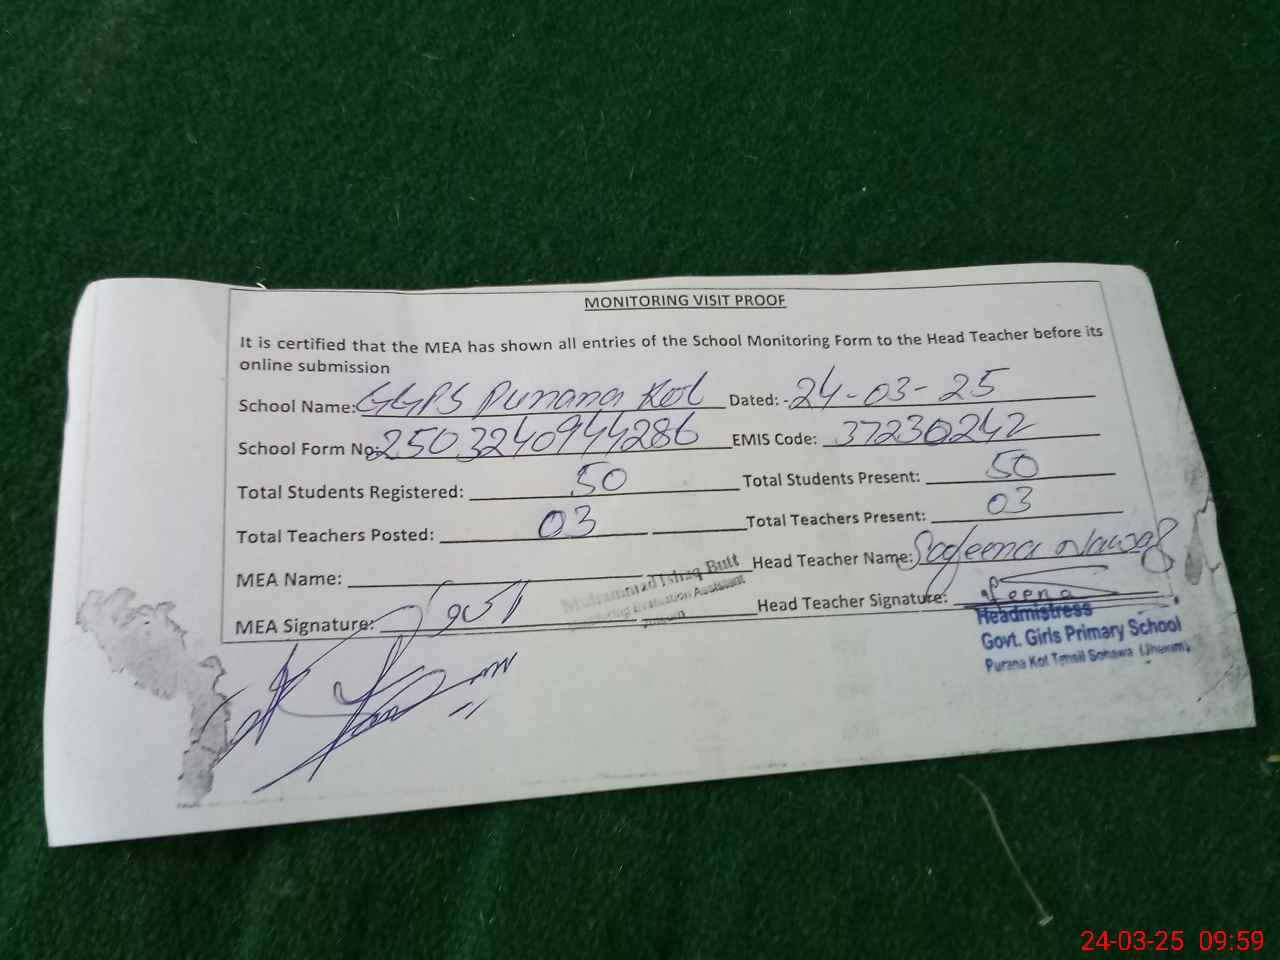 MONITORING VISIT PROOF
It is certified that the MEA has shown all entries of the School Monitoring Form to the Head Teacher before its
online submission
School Name: GGPS Purana Kot Dated: 24-03-25
School Form No: 2503240944286 EMIS Code: 37230242
Total Students Registered: 50 Total Students Present: 50
Total Teachers Posted: 03 Total Teachers Present: 03
MEA Name: Muhammad Ishaq Butt Head Teacher Name: Nawaz
Evaluation Assistant
MEA Signature: Head Teacher Signature:
Headmistress
Govt. Girls Primary School
Purana Kot Tehsil Sohawa (Jhelum)
24-03-25 09:59